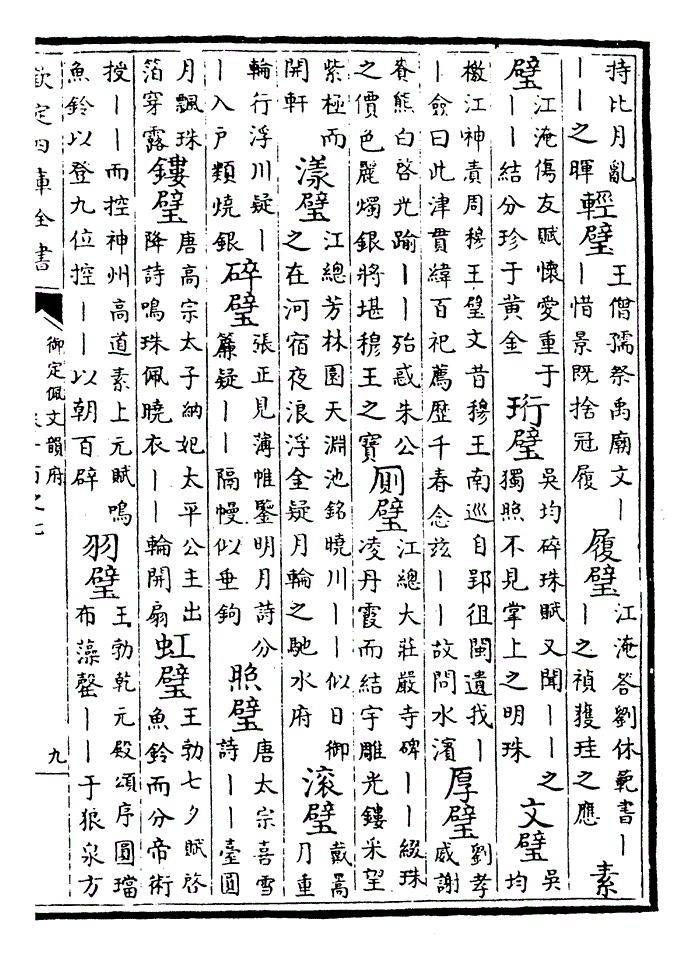 持比月亂
｜｜之暉
輕璧
王僧孺祭禹廟文｜
｜惜景既捨冠履
履璧
江淹答劉休範書｜
｜之禎獲珪之應
素
璧
江淹傷友賦懷愛重于
｜｜結分珍于黃金
珩璧
吳均碎珠賦又聞｜｜之
獨照不見掌上之明珠
文璧
吳
均
檄江神責周穆王璧文昔穆王南巡自郢徂閩遺我｜
｜僉曰此津貫緯百祀薦歷千春念兹｜｜故問水濱
厚璧
劉孝
威謝
賚熊白啓光踰｜｜殆惑朱公
之價色麗燭銀將堪穆王之寶
厠璧
江總大莊嚴寺碑｜｜綴珠
凌丹霞而結宇雕光鏤采望
紫極而
開軒
漾璧
江總芳林園天淵池銘曉川｜｜似日御
之在河宿夜浪浮金疑月輪之馳水府
滾璧
戴暠
月重
輪行浮川疑｜
｜入戶類燒銀
碎璧
張正見薄帷鑒明月詩分
簾疑｜｜隔幔似垂鉤
照璧
唐太宗喜雪
詩｜｜臺圓
月飄珠
箔穿露
鏤璧
唐高宗太子納妃太平公主出
降詩鳴珠佩曉衣｜｜輪開扇
虹璧
王勃七夕賦啓
魚鈴而分帝術
授｜｜而控神州高道素上元賦鳴
魚鈴以登九位控｜｜以朝百辟
羽璧
王勃乾元殿頌序圓璫
布藻罄｜｜于狼泉方
欽定四庫全書
御定佩文韻府
卷一百之七
九